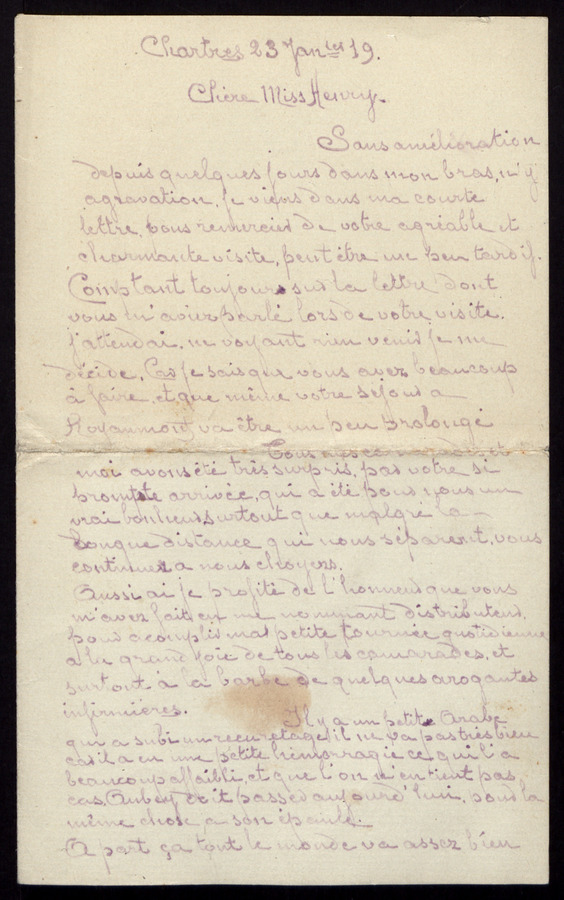 Chartres 23 Janier 19.
Chère Miss Henry.
Sans amélioration
depuis quelques jours dans mon bras, n'y
agravation, je viens dans ma courte
lettre, vous remercier de votre agréable et
charmante visite, peut être un peu tardif.
Comptant toujours sur la lettre dont
vous m'aviez parlé lors de votre visite.
j'attendai, ne voyant rien venir je me
décide, Car je sais que vous avez beaucoup
à faire, et que même votre séjour a
Royaumont va être un peu prolongé
Tous mes camarades et
moi avons été très surpris, par votre si
prompte arrivée, qui a été pour nous un
vrai bonheur surtout que malgré la
longue distance qui nous séparent, vous
continuez a nous choyers.
Aussi ai je profité de l'honneur que vous
m'avez fait en me nommant distributeur,
pour acomplir ma petite tournée quotidienne
a la grand joie de tous les camarades, et
surtout à la barbe de quelques arogantes
infirmières.
Il y a un petit Arabe
qui a subi un recuretage il ne va pas très bien
car il a eu une petite hémorragie ce qui l'a
beaucoup affaibli, et que l'on n'en tient pas
cas. Aubey doit passer aujourd'hui, pour la
même chose a son épaule.
A part ça tout le monde va assez bien